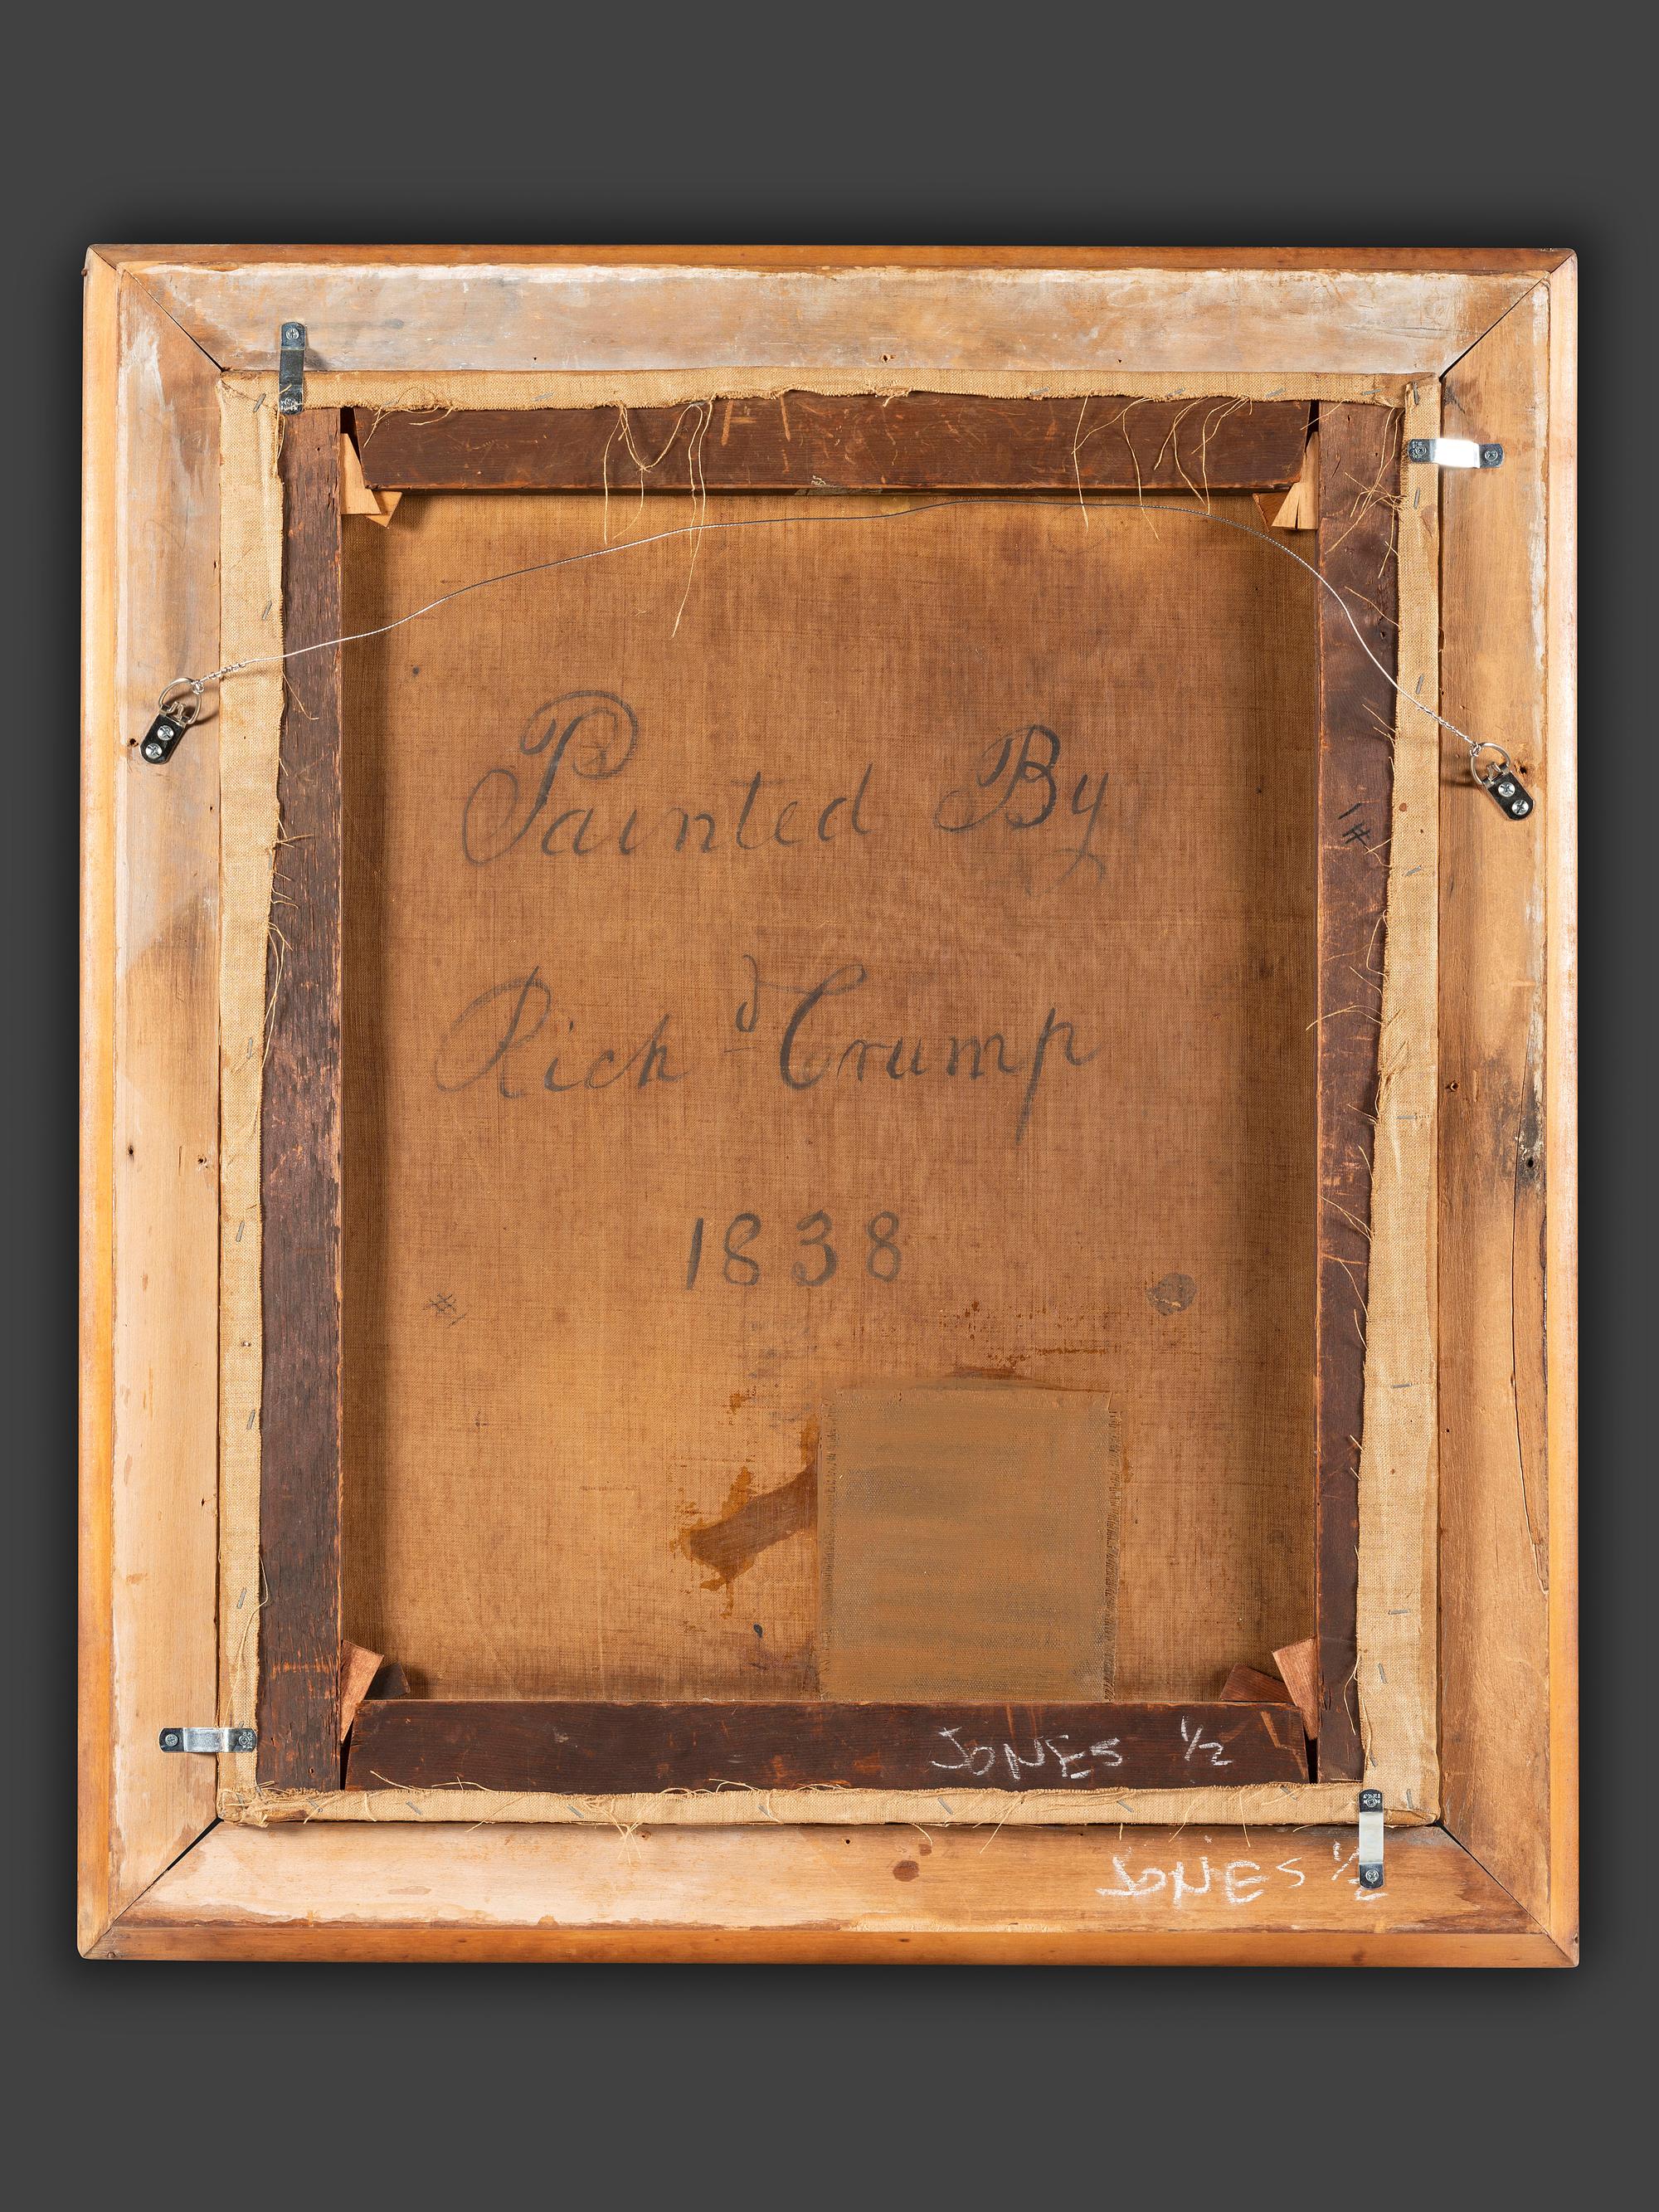 Painted By
Richd Crump
1838
JONES 1/2
JONES 1/2